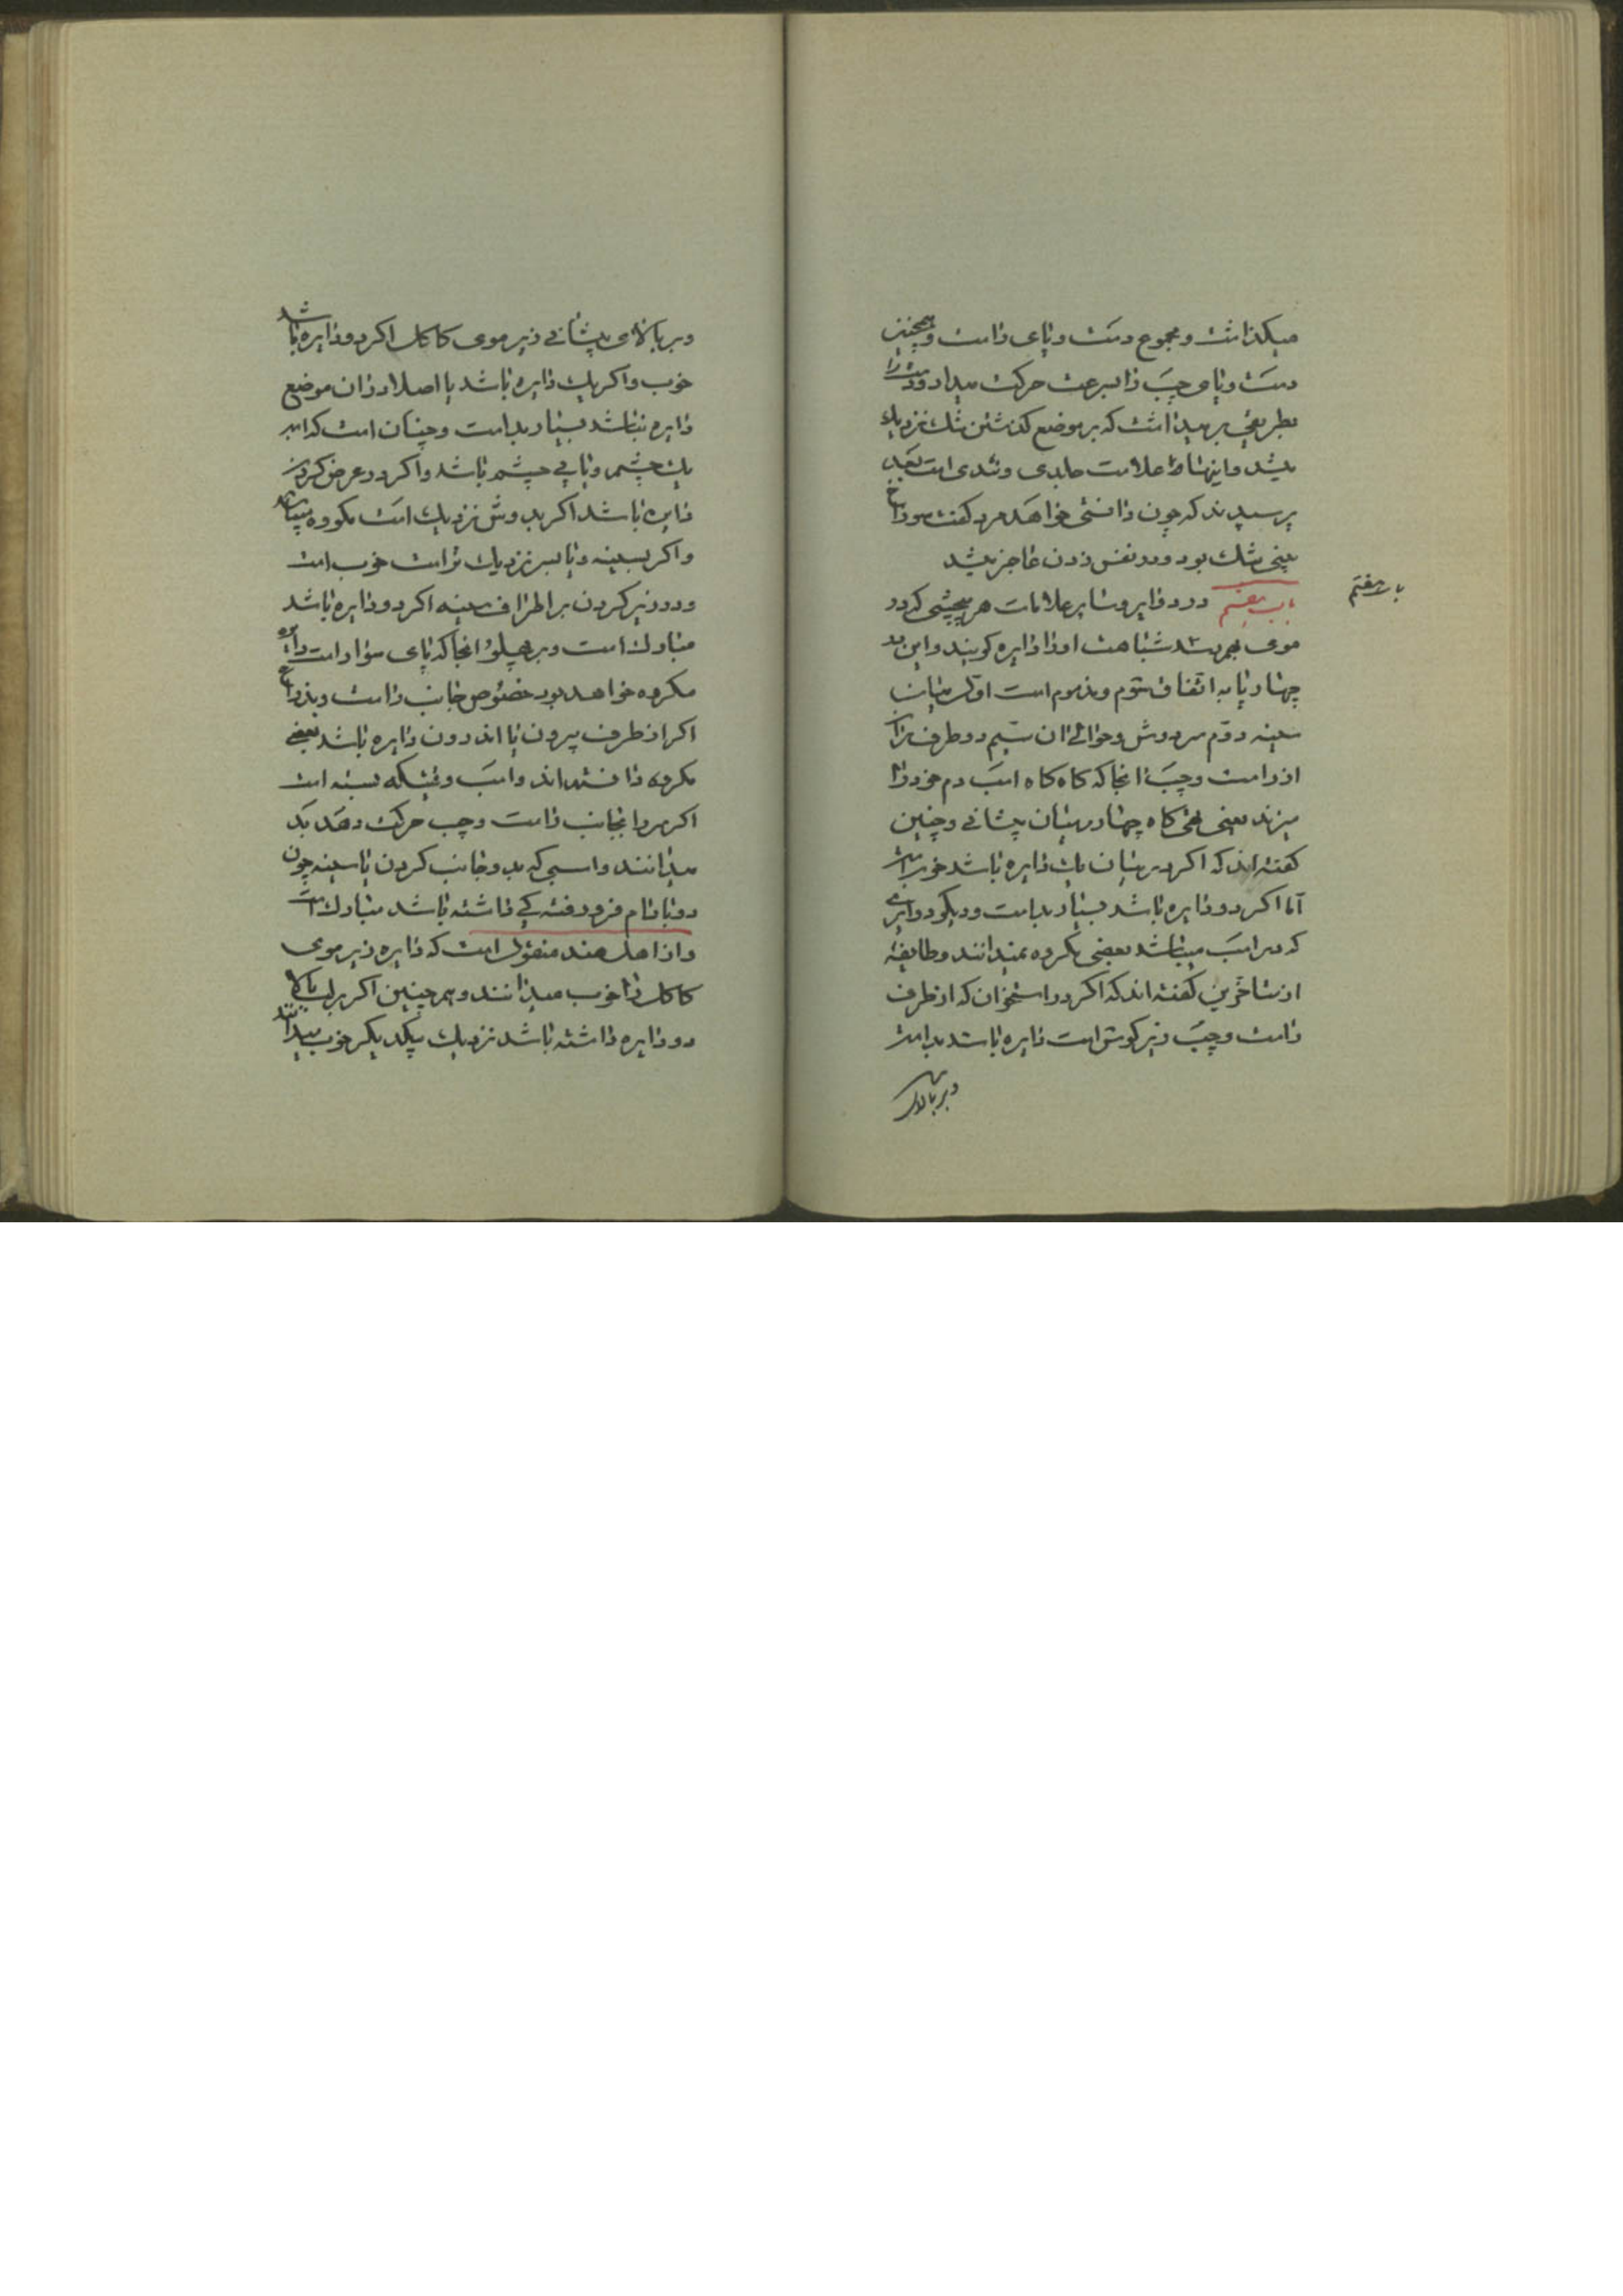 میکذاشت و مجموع دست و پای راست و همچنین
دست و پای چپ را بسرعت حرکت میداد و دست را
بطریقی بر میداشت که بر موضع کذشتن تنک نزدیک
میشد و اینها علامت جلدی و تندی است بعد
پرسیدند که چون دانستی خواهد مرد کفت سوراخ
بینی تنک بود و در نفس زدن عاجز میشد
باب هفتم در دوایر و سایر علامات هر پیچشی که در
باب هفتم
موی بهم رسد شباهت او را دایره کویند و این در
چهار پا به اتفاق شوم و مذموم است اول میان
سینه دوم سر دوش و حوالی ان سیم دو طرف ران
از راست و چپ انجا که کاه کاه اسب دم خود را
میزند یعنی تهی کاه چهار میان پیشانی و چنین
کفته اند که اکر در میان یک دایره باشد خوب است
اما اکر دو دایره باشد بسیار بد است و دیکر دوایری
که در اسب میباشد بعضی مکروه نمیدانند و طایفهٔ
از متاخرین کفته اند که اکر در استخوان که از طرف
راست و چپ زیر کوش است دایره باشد بد است
و بر بالای
و بر بالای پیشانی زیر موی کاکل اکر دو دایره باشد
خوب و اکر یک دایره باشد یا اصلا در ان موضع
دایره نباشد بسیار بد است و چنان است که اسب
یک چشم و یا بی چشم باشد و اکر در عرض کردن
دایره باشد اکر بدوش نزدیک است مکروه میباشد
و اکر بسینه و یا بسر نزدیک تر است خوب است
و در زیر کردن بر اطراف سینه اکر دو دایره باشد
مبارک است و بر پهلو انجا که پای سوار است دایره
مکروه خواهد بود خصوص جانب راست و بذراع
اکر از طرف بیرون یا اندرون دایره باشد بعضی
مکروه دانسته اند و اسب وقتیکه بسته است
اکر سر را بجانب راست و چپ حرکت دهد بد
میدانند و اسبی که بدو جانب کردن یا سینه چون
دو بادام فرو رفته کی داشته باشد مبارک است
و از اهل هند منقول است که دایره زیر موی
کاکل را خوب میدانند و همچنین اکر بر لب بالا
دو دایره داشته باشد نزدیک یکدیکر خوب میدانند